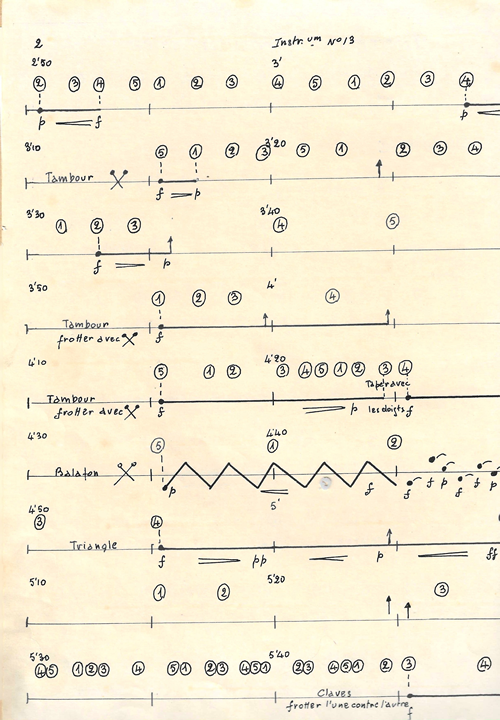 2 Instr.um No 13
2'50 3'
② ③ ④ ⑤ ① ② ③ ④ ⑤ ① ② ③ ④
p f p
3'10 3'20
⑤ ① ② ③ ⑤ ① ② ③ ④
Tambour
f p
3'30 3'40
① ② ③ ④ ⑤
f p
3'50 4'
① ② ③ ④
Tambour
frotter avec f
4'10 4'20
⑤ ① ② ③ ④ ⑤ ① ② ③ ④
Taper avec
Tambour
frotter avec f p les doigts f
4'30 4'40
⑤ ① ②
Balafon
p f f f p f p
4'50 5'
③ ④
Triangle
f pp p ff
5'10 5'20
① ② ③
5'30 5'40
④⑤ ①②③ ④ ⑤① ②③ ④⑤① ②③ ④⑤① ② ③ ④
Claves
frotter l'une contre l'autre
f